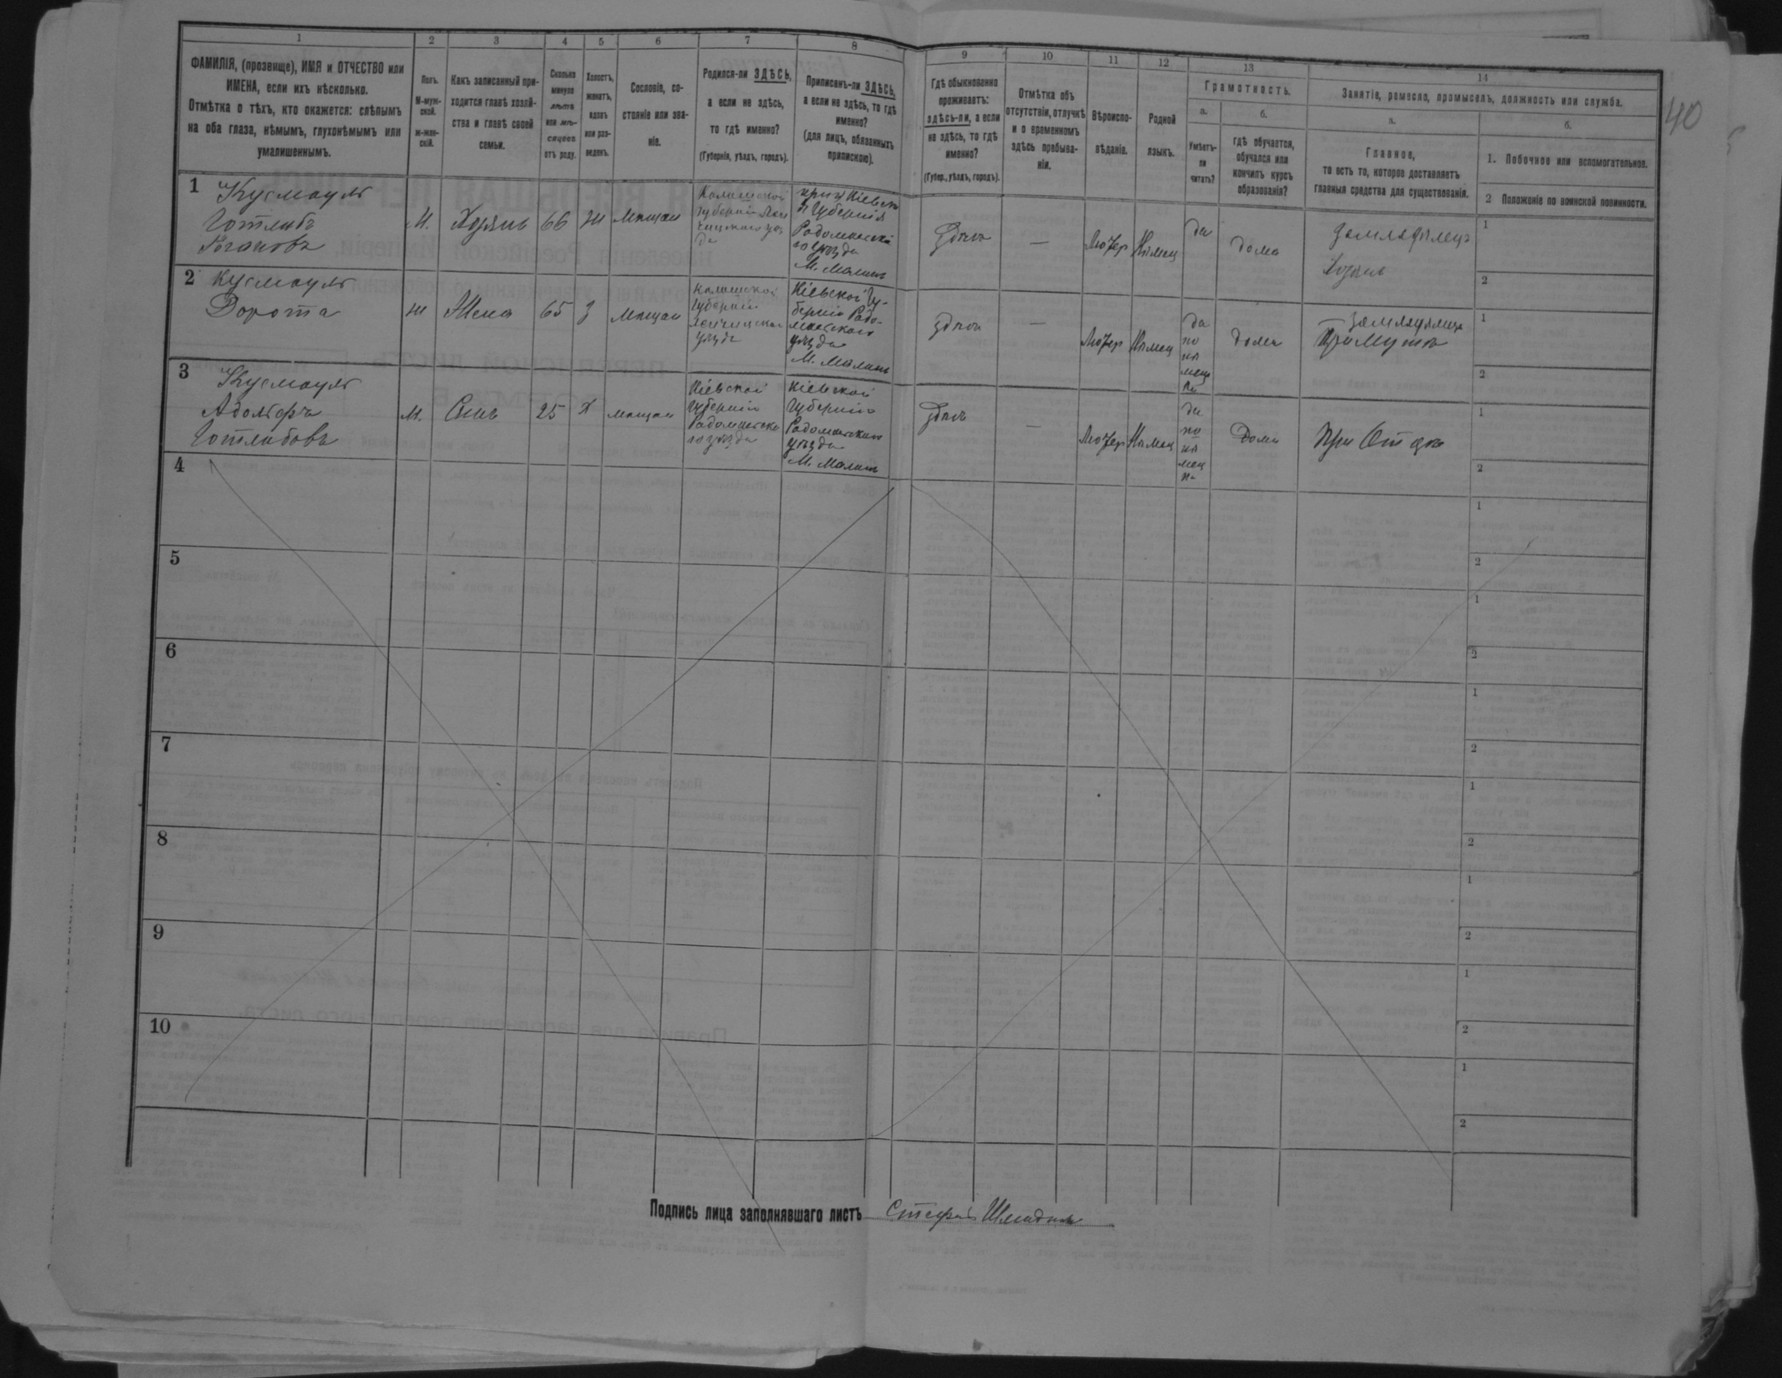 40
1 2 3 4 5 6 7 8 9 10 11 12 13 14
ФАМИЛІЯ, (прозвище), ИМЯ и ОТЧЕСТВО или
ИМЕНА, если ихъ нѣсколько.
Отмѣтка о тѣхъ, кто окажется: слѣпымъ
на оба глаза, нѣмымъ, глухонѣмымъ или
умалишеннымъ.
Полъ.
М-муж-
ской.
Ж-жен-
скій.
Какъ записанный при-
ходится главѣ хозяй-
ства и главѣ своей
семьи.
Сколько
минуло
лѣтъ
или мѣ-
сяцевъ
отъ роду.
Холостъ,
женатъ,
вдовъ
или раз-
веденъ.
Сословіе, со-
стояніе или зва-
ніе.
Родился-ли ЗДѢСЬ,
а если не здѣсь,
то гдѣ именно?
(Губернія, уѣздъ, городъ).
Приписанъ-ли ЗДѢСЬ,
а если не здѣсь, то гдѣ
именно?
(для лицъ, обязанныхъ
припискою).
Гдѣ обыкновенно
проживаетъ:
здѣсь-ли, а если
не здѣсь, то гдѣ
именно?
(Губер., уѣздъ, городъ).
Отмѣтка объ
отсутствіи, отлучкѣ
и о временномъ
здѣсь пребыва-
ніи.
Вѣроиспо-
вѣданіе.
Родной
языкъ.
Грамотность.
а.
Умѣетъ-
ли
читать?
б.
гдѣ обучается,
обучался или
кончилъ курсъ
образованія?
Занятіе, ремесло, промыселъ, должность или служба.
а.
Главное,
то есть то, которое доставляетъ
главныя средства для существованія.
б.
1. Побочное или вспомогательное.
2 Положеніе по воинской повинности.
1
Кусмауль
Готлибъ
М.
Хозяинъ
66
Ж
Мѣщан
Калишской
Губерніи
Кіевско
й Губернія
уѣзда
М. Малинъ
Здѣсь
—
Лютер
Нѣмец
да
дома
Хозяинъ
1
2
2
Кусмауль
Дорота
Ж
Жена
65
З
Мѣщан
Калишской
Губерніи
уѣзда
Кіевской Гу-
берніи Радо-
мысскаго
уѣзда
М. Малинъ
Здѣсь
—
Лютер
Нѣмец
да
по
нѣ
мецк
и
дома
1
2
3
Кусмауль
Адольфъ
Готлибовъ
М.
Сынъ
25
Х
Мѣщан
Кіевской
Губерніи
Радомысска
го уѣзда
Кіевской
Губерніи
Радомысскаго
уѣзда
М. Малинъ
Здѣсь
—
Лютер
Нѣмец
да
по
нѣ
мец
ки
Дома
При Отцѣ
1
2
4
1
2
5
1
2
6
1
2
7
1
2
8
1
2
9
1
2
10
1
2
Подпись лица заполнявшаго листъ